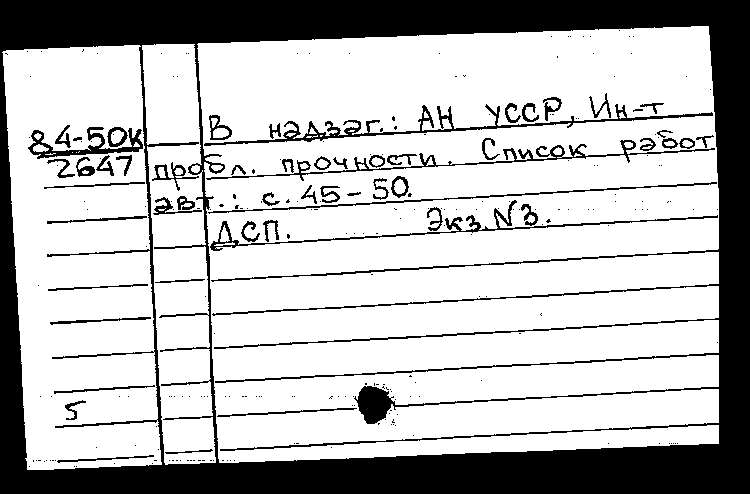 84-50К
2647
В надзаг.: АН УССР, Ин-т
пробл. прочности. Список работ
авт.: с. 45-50.
ДСП. Экз. N3.
5